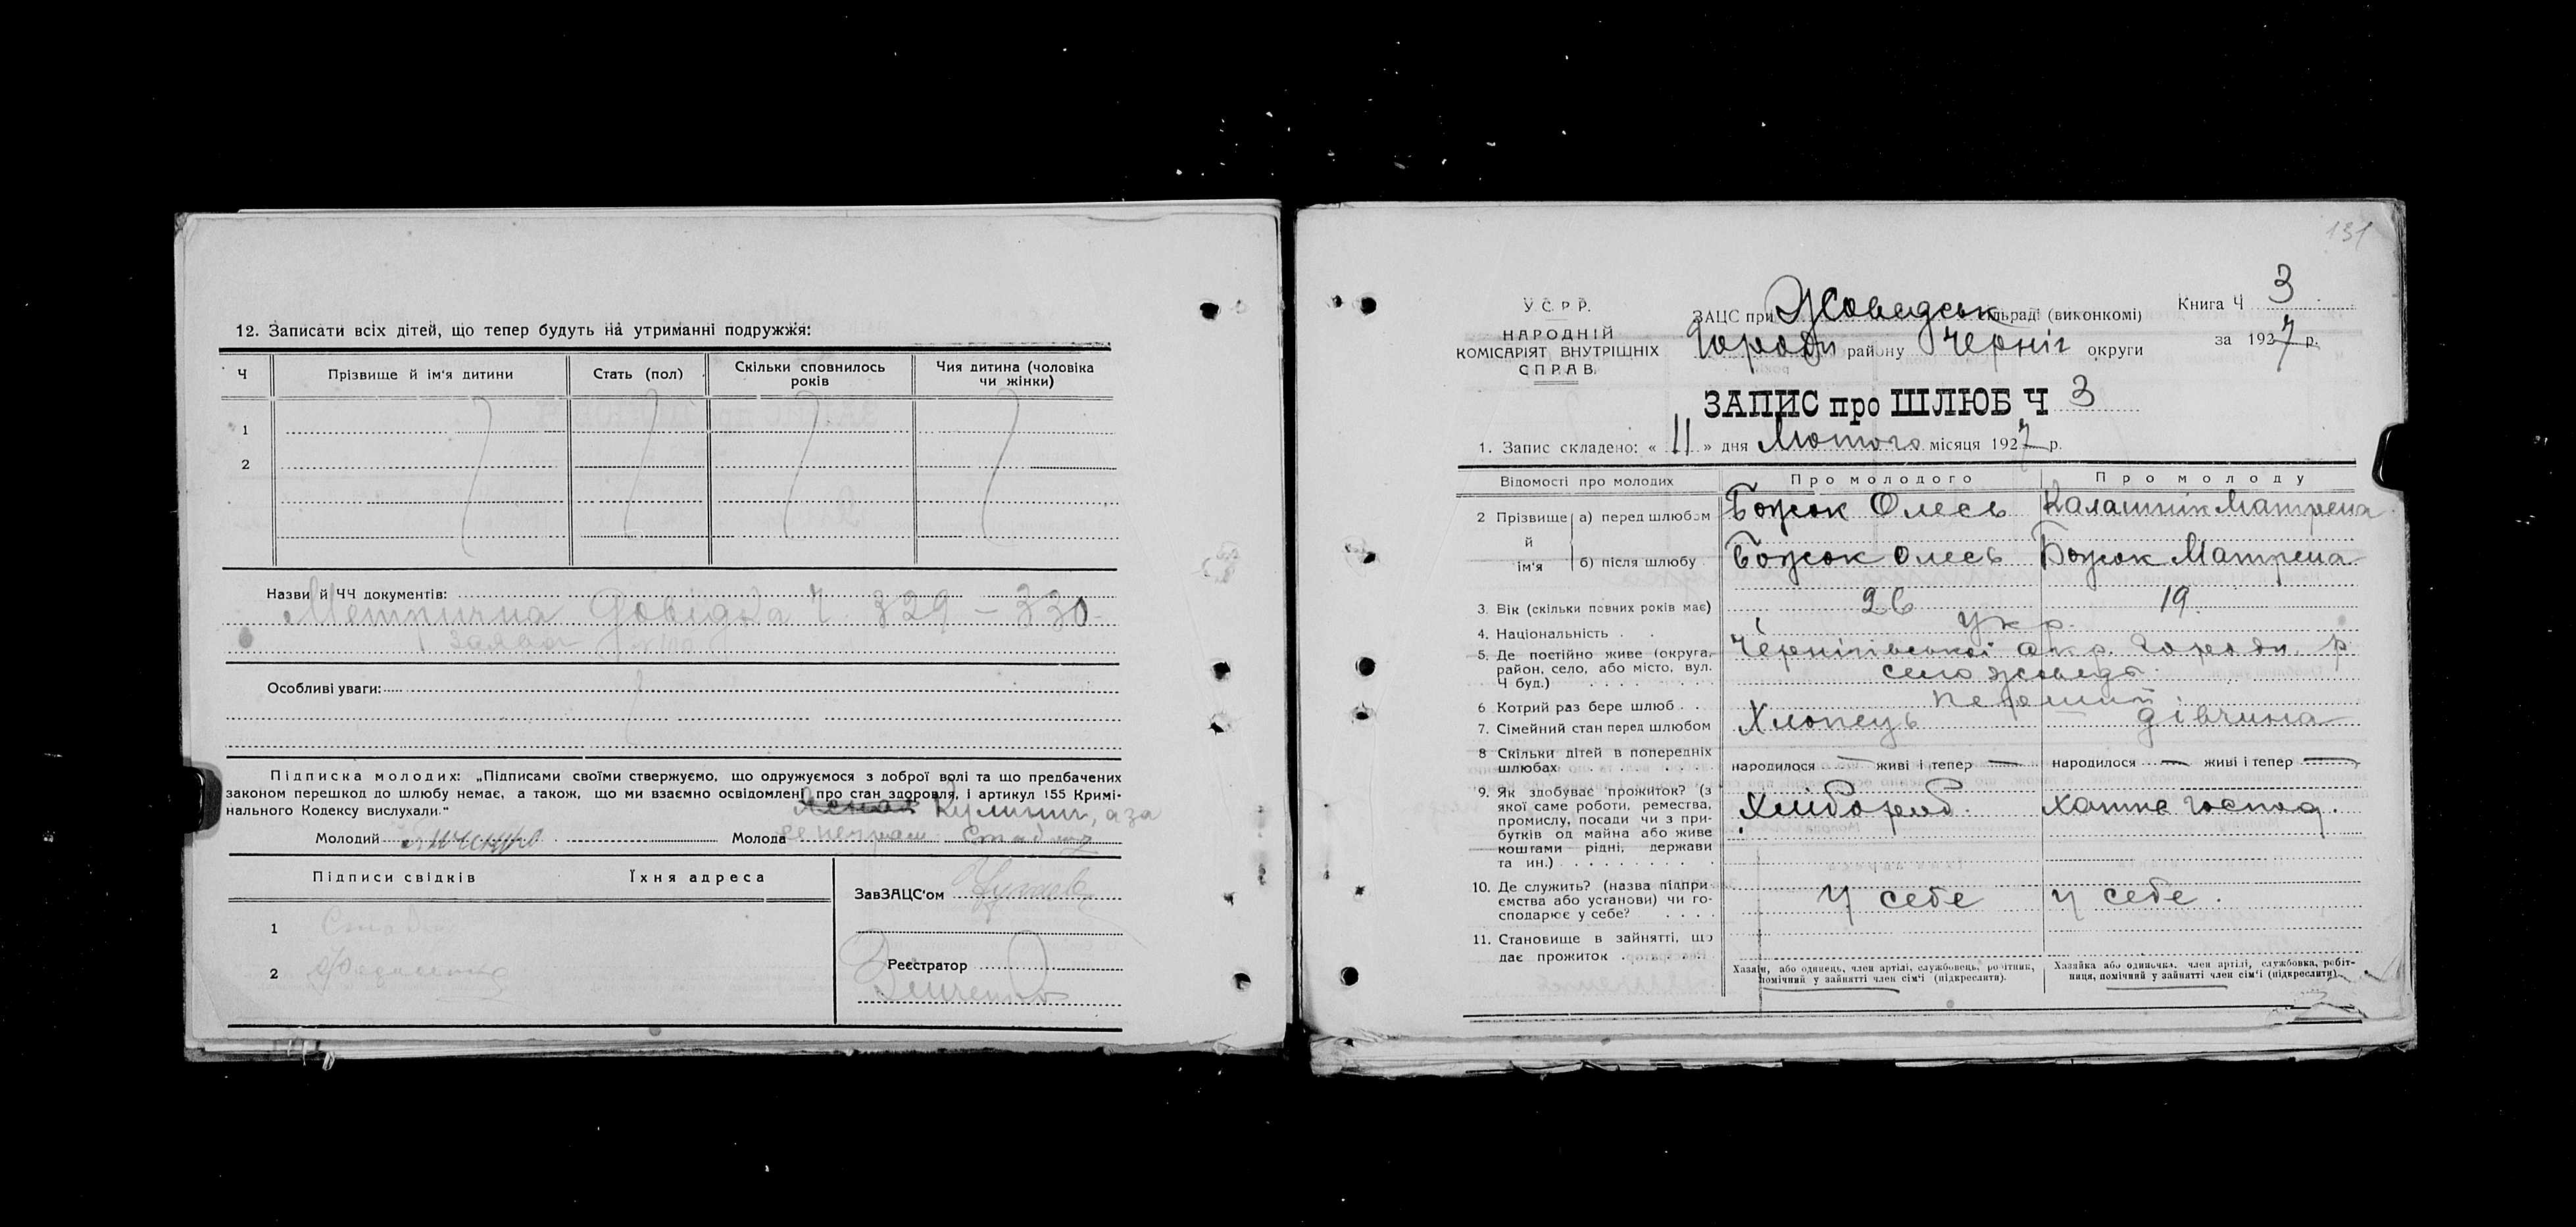 12. Записати всіх дітей, що тепер будуть на утриманні подружжя:
Ч
Прізвище й ім'я дитини
Стать (пол)
Скільки сповнилось років
Чия дитина (чоловіка чи жінки)
1
2
Назви й ЧЧ документів:
Метрична Довідка Ч. 329 – 330
Заява
Особливі уваги:
Підписка молодих: „Підписами своїми ствержуємо, що одружуємося з доброї волі та що предбачених
законом перешкод до шлюбу немає, а також, що ми взаємно освідомлені про стан здоровля, і артикул 155 Кримі-
нального Кодексу вислухали."
Молодий
Молода
Підписи свідків
Їхня адреса
1
2
ЗавЗАЦС'ом
Реєстратор
131
У С Р Р.
НАРОДНІЙ
КОМІСАРІЯТ ВНУТРІШНІХ
СПРАВ.
ЗАЦС при Жоведськ сільраді (виконкомі)
Городн району Черніг округи
Книга Ч 3
за 1927 р.
ЗАПИС про ШЛЮБ Ч 3
1. Запис складено: « 11 » дня Лютого місяця 1927 р.
Відомості про молодих
Про молодого
Про молоду
2 Прізвище й ім'я
а) перед шлюбом
Божок Олесь
Калашнік Матрена
б) після шлюбу
Божок Олесь
Божок Матрена
3. Вік (скільки повних років має)
26
19
4. Національність . .
укр.
5. Де постійно живе (округа, район, село, або місто, вул. Ч буд.)
Чернігівської окр. Городн. р
село Жоведь
6 Котрий раз бере шлюб . .
перший
7. Сімейний стан перед шлюбом
Хлопець
дівчина
8 Скільки дітей в попередніх шлюбах
народилося — живі і тепер —
народилося — живі і тепер —
9. Як здобуває прожиток? (з якої саме роботи, ремества, промислу, посади чи з прибутків од майна або живе коштами рідні, держави та ин.)
Хлібороб.
хатнє господ.
10. Де служить? (назва підпри-
ємства або установи) чи го-
сподарює у себе?
У себе
у себе.
11. Становище в зайнятті, що
дає прожиток
Хазяїн, або одинець, член артілі, службовець, робітник,
помічний у зайнятті член сім'ї (підкреслити).
Хазяйка або одиначка, член артілі, службовка, робіт-
ниця, помічний у зайнятті член сім'ї (підкреслити)